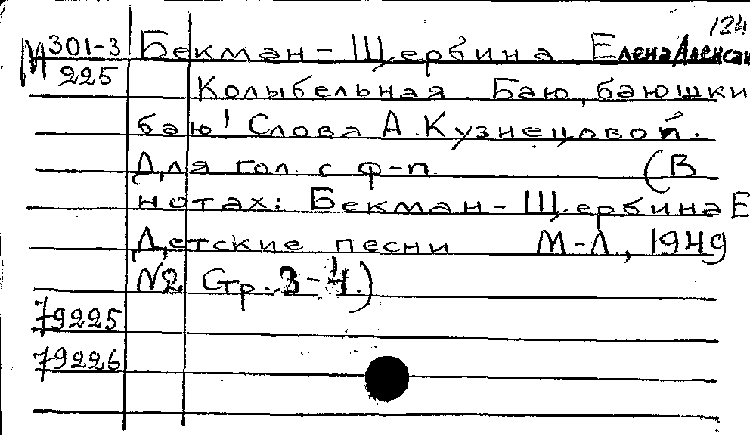 124
М 301-3 Бекман-Щербина Елена Алексан
225 Колыбельная Баю, баюшки
баю! Слова А. Кузнецовой.
Для гол. с ф-п. (В
нотах: Бекман-Щербина Е
Детские песни М-Л., 1949
№2 Стр. 3-4.)
79225
79226